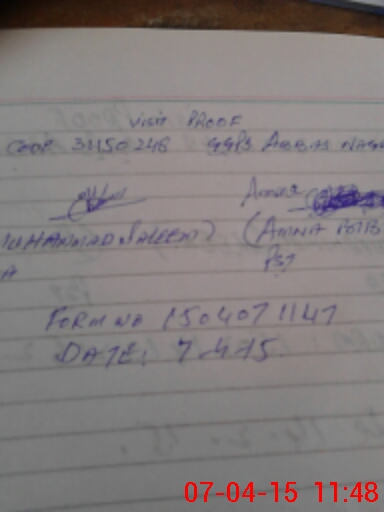 Visit PROOF
CODE 31150246 GGPS ABBAS NAGA
Amna
MUHAMMAD SALEEM) (AMNA
A PST
FORM NO 1504071147
DATE: 7.4.15
07-04-15 11:48